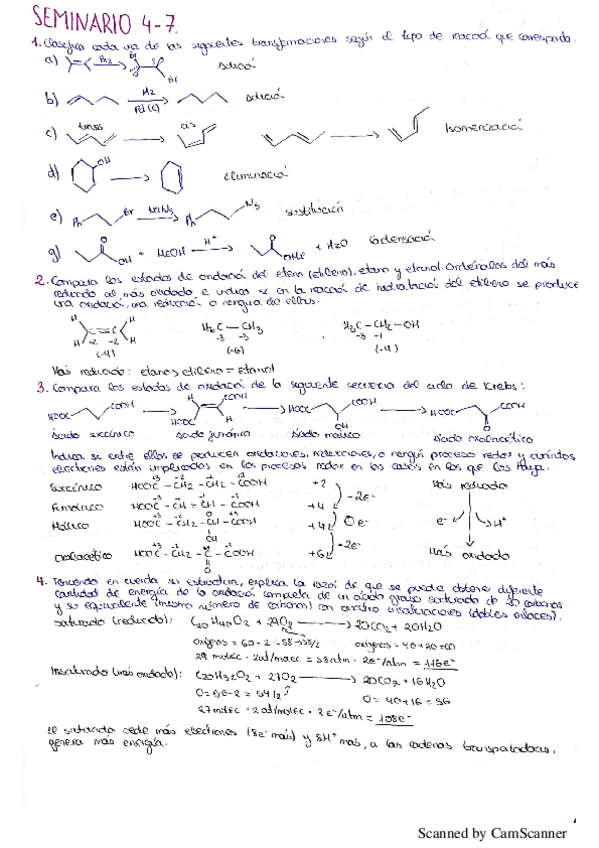 SEMINARIO 4-7.
1. Clasifica cada una de las siguientes transformaciones según el tipo de reacció que corresponda.
a) Br2 Br Br adició
b) H2 Pd (C) adició
c) trans cis Isomerizació
d) OH eliminació
e) Ph Br NaN3 Ph N3 sustitució
g) O OH + MeOH H+ O OMe + H2O condensació
2. Compara los estados de oxidació del eteno (etileno), etano y etanol. Ordénalos del más
reducido al más oxidado e indica si en la reacció de hidratació del etileno se produce
una oxidació, una reducció o ninguna de ellas.
H H C=C H H -2 -2 H3C-CH3 -3 -3 H3C-CH2-OH -3 -1
(-4) (-6) (-4)
Más reducido: etano > etileno = etanol
3. Compara los estados de oxidació de la siguiente secuencia del ciclo de Krebs:
HOOC COOH HOOC H H COOH HOOC COOH OH HOOC COOH O
Ácido succínico ácido fumárico ácido málico ácido oxalacético
Indica si entre ellos se producen oxidaciones, reducciones, o ningú proceso redox y cuántos
electrones están implicados en los procesos redox en los casos en los que los haya.
Succínico HOOC-CH2-CH2-COOH +3 -2 -2 +3 +2 -2e- Más reducido
Fumárico HOOC-CH=CH-COOH +4
Málico HOOC-CH2-CH-COOH OH +4 0e- e- H+
oxalacético HOOC-CH2-C-COOH O +6 -2e- Más oxidado
4. Teniendo en cuenta su estructura, explica la razó de que se puede obtener diferente
cantidad de energía de la oxidació completa de un ácido graso saturado de 20 carbonos
y su equivalente (mismo número de carbonos) con cuatro insaturaciones (dobles enlaces).
saturado (reducido): C20H40O2 + 29O2 → 20CO2 + 20H2O
oxígenos = 60-2 = 58 → 58/2 oxígenos = 40+20 = 60
29 molec · 2at/molec = 58atm · 2e-/atm = 116e-
Insaturado (más oxidado): C20H32O2 + 27O2 → 20CO2 + 16H2O
O = 56-2 = 54/2 O = 40+16 = 56
27 molec · 2at/molec · 2e-/atm = 108e-
El saturado cede más electrones (8e- más) y 8H+ más, a las cadenas transportadoras,
genera más energía.
Scanned by CamScanner